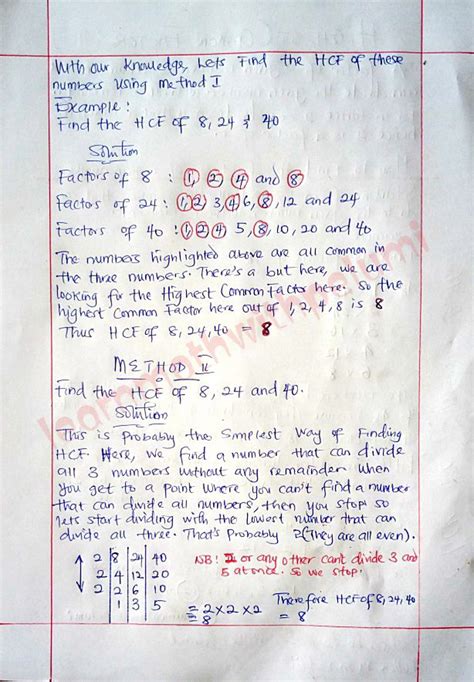 With our Knowledge, Lets Find the HCF of these
numbers Using method I
Example:
Find the HCF of 8, 24 & 40
Solution
Factors of 8 : 1, 2, 4 and 8
Factors of 24 : 1, 2, 3, 4, 6, 8, 12 and 24
Factors of 40 : 1, 2, 4, 5, 8, 10, 20 and 40
The numbers highlighted above are all common in
the three numbers. There's a but here, we are
looking for the Highest Common Factor here. So the
highest Common Factor here out of 1, 2, 4, 8 is 8
Thus HCF of 8, 24, 40 = 8
METHOD II
Find the HCF of 8, 24 and 40.
Solution
This is Probably the Simplest Way of Finding
HCF. Here, we find a number that can divide
all 3 numbers without any remainder when
you get to a point where you can't find a number
that can divide all numbers, then you stop so
lets start dividing with the lowest number that can
divide all three. That's Probably 2 (They are all even).
2 8 24 40
2 4 12 20
2 2 6 10
1 3 5
NB! II or any other cant divide 3 and
5 at once. So we stop.
= 2 x 2 x 2
= 8
Therefore HCF of 8, 24, 40
= 8
learnmathwithpelumi